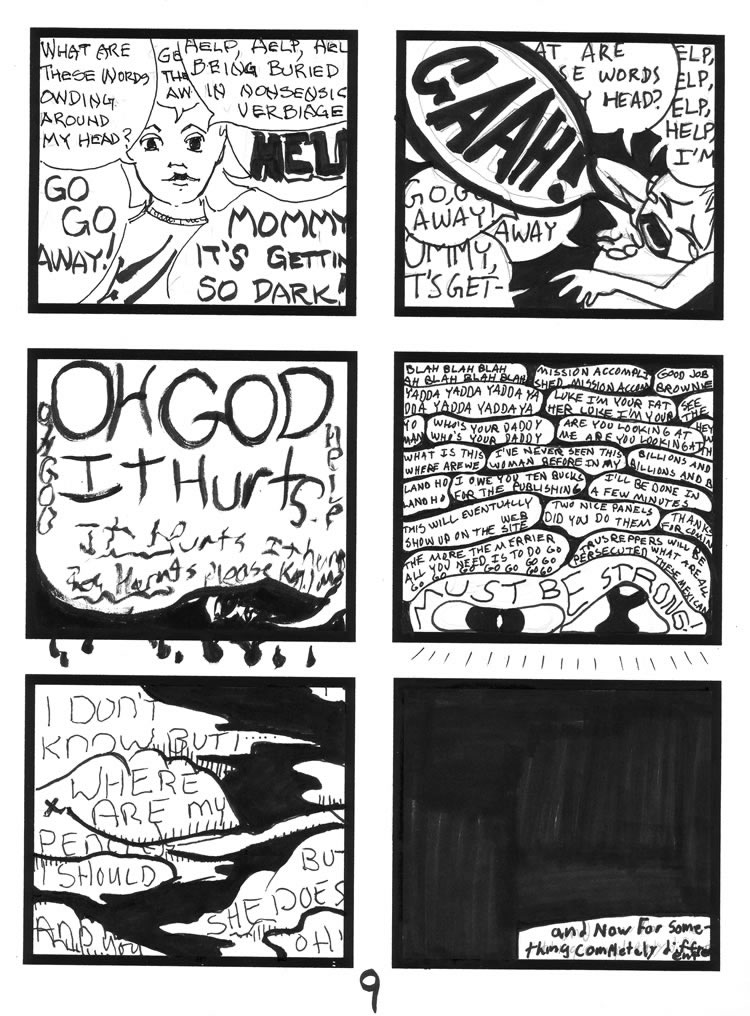 WHAT ARE
THESE WORDS
OWDING
AROUND
MY HEAD?
GE
THE
AW
HELP, HELP, HEL
BEING BURIED
IN NONSENSIC
VERBIAGE
HELP
GO
GO
AWAY!
MOMMY
IT'S GETTIN
SO DARK!
GAAH!
AT ARE
SE WORDS
Y HEAD?
ELP,
ELP,
ELP,
HELP,
I'M
GO, G
AWAY!
AWAY
UMMY,
T'S GET-
OH GOD
OH GOD
HELP
IT HURTS
It hurts It hurt
please kill me
BLAH BLAH BLAH
AH BLAH BLAH BLAH
MISSION ACCOMPLI
SHED MISSION ACCOM
GOOD JOB
BROWNIE
YADDA YADDA YADDA YA
DDA YADDA YADDA YA
LUKE I'M YOUR FAT
HER LUKE I'M YOUR
SEE
THE
YO
MAN
WHO'S YOUR DADDY
WHO'S YOUR DADDY
ARE YOU LOOKING AT
ME ARE YOU LOOKING AT
HEY
WHAT IS THIS
WHERE ARE WE
I'VE NEVER SEEN THIS
WOMAN BEFORE IN MY
BILLIONS AND
BILLIONS AND B
LAND HO
LAND HO
I OWE YOU TEN BUCKS
FOR THE PUBLISHING
I'LL BE DONE IN
A FEW MINUTES
THIS WILL EVENTUALLY
SHOW UP ON THE WEB SITE
TWO NICE PANELS
DID YOU DO THEM
THANKS
FIR COMIN
THE MORE THE MERRIER
ALL YOU NEED IS TO DO GO
GO GO GO GO GO GO GO
TRUSREPPERS WILL BE
PERSECUTED WHAT ARE ALL
THESE MEXICAN
MUST BE STRONG!
I DON'T
KNOW BUT I ....
WHERE
ARE MY
PENCILS
I SHOULD
BUT
SHE DOES
AND YOU
OH
and Now For Some-
thing Completely different
9